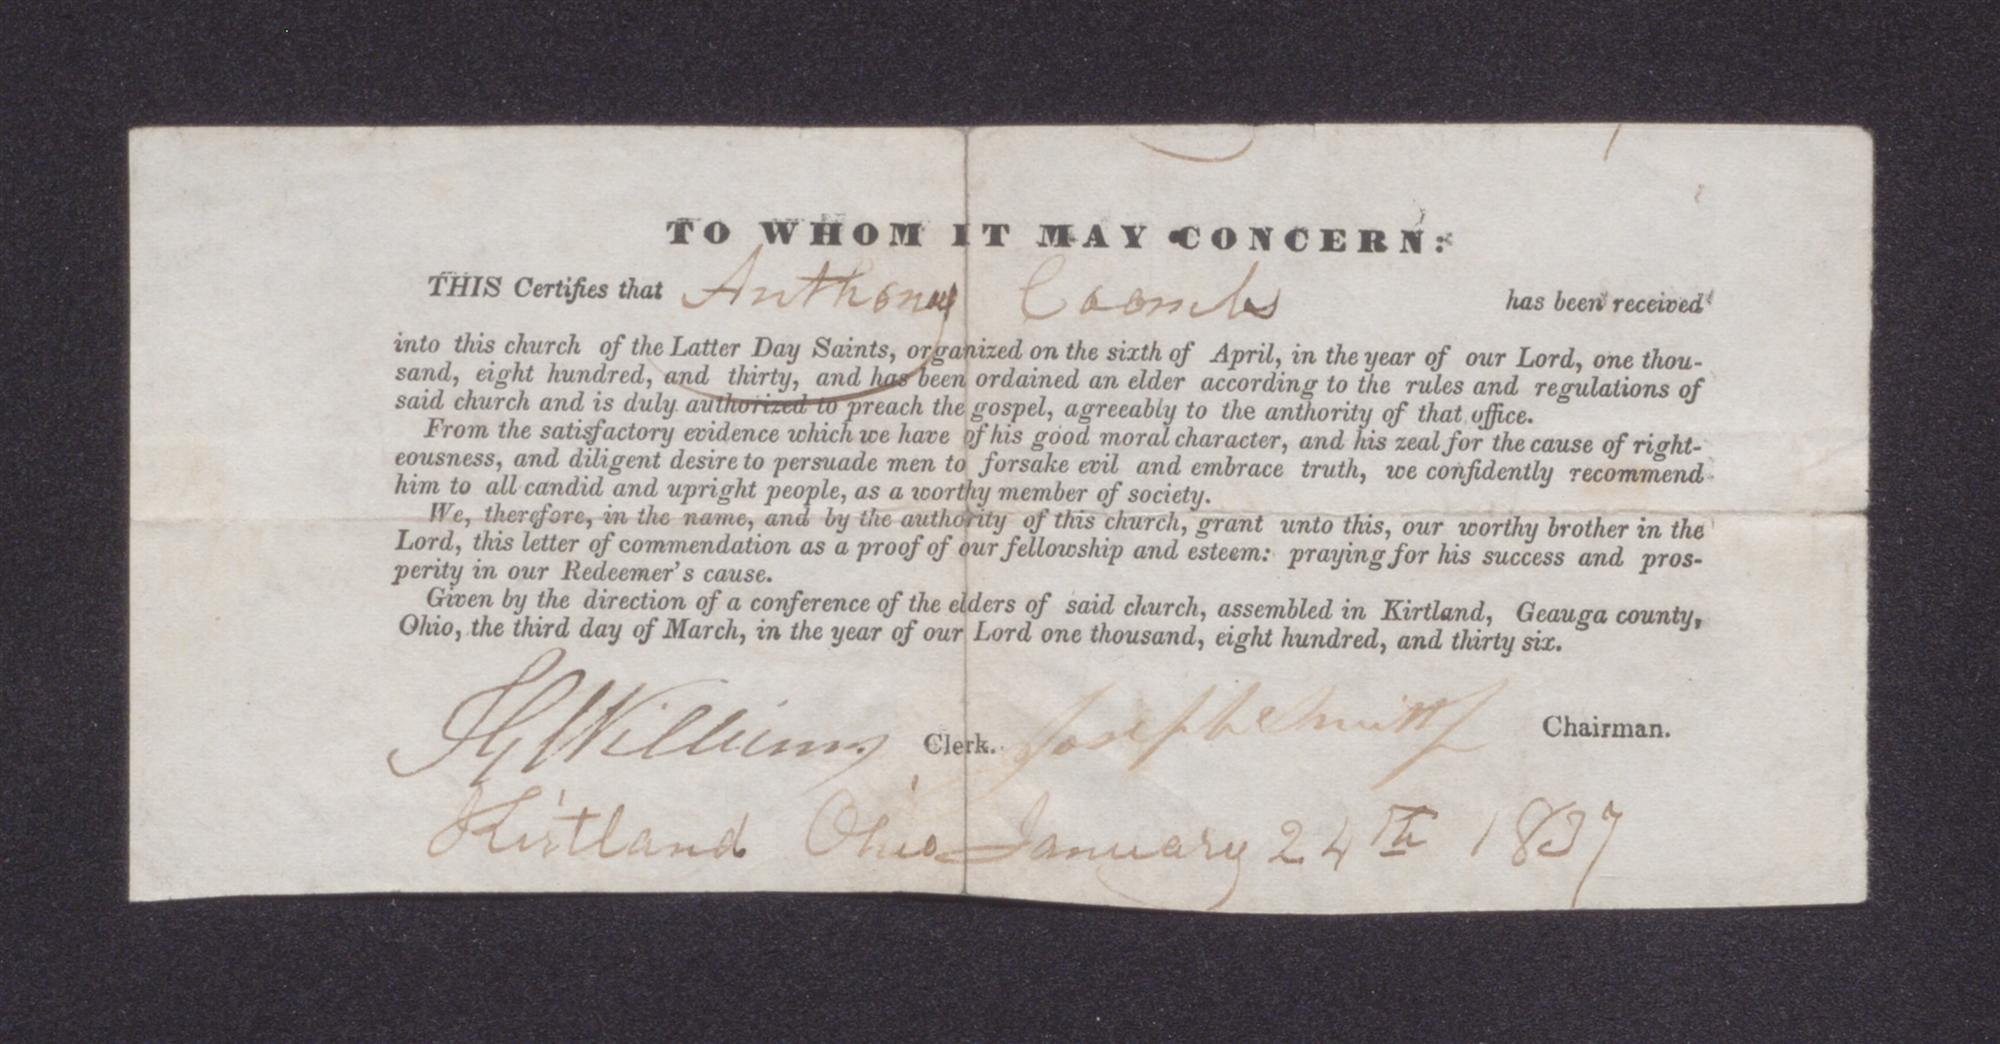 TO WHOM IT MAY CONCERN:
THIS Certifies that Anthony Coombs has been received
into this church of the Latter Day Saints, organized on the sixth of April, in the year of our Lord, one thou-
sand, eight hundred, and thirty, and has been ordained an elder according to the rules and regulations of
said church and is duly authorized to preach the gospel, agreeably to the anthority of that office.
From the satisfactory evidence which we have of his good moral character, and his zeal for the cause of right-
eousness, and diligent desire to persuade men to forsake evil and embrace truth, we confidently recommend
him to all candid and upright people, as a worthy member of society.
We, therefore, in the name, and by the authority of this church, grant unto this, our worthy brother in the
Lord, this letter of commendation as a proof of our fellowship and esteem: praying for his success and pros-
perity in our Redeemer's cause.
Given by the direction of a conference of the elders of said church, assembled in Kirtland, Geauga county,
Ohio, the third day of March, in the year of our Lord one thousand, eight hundred, and thirty six.
F G Williams Clerk. Joseph Smith Chairman.
Kirtland Ohio January 24th 1837